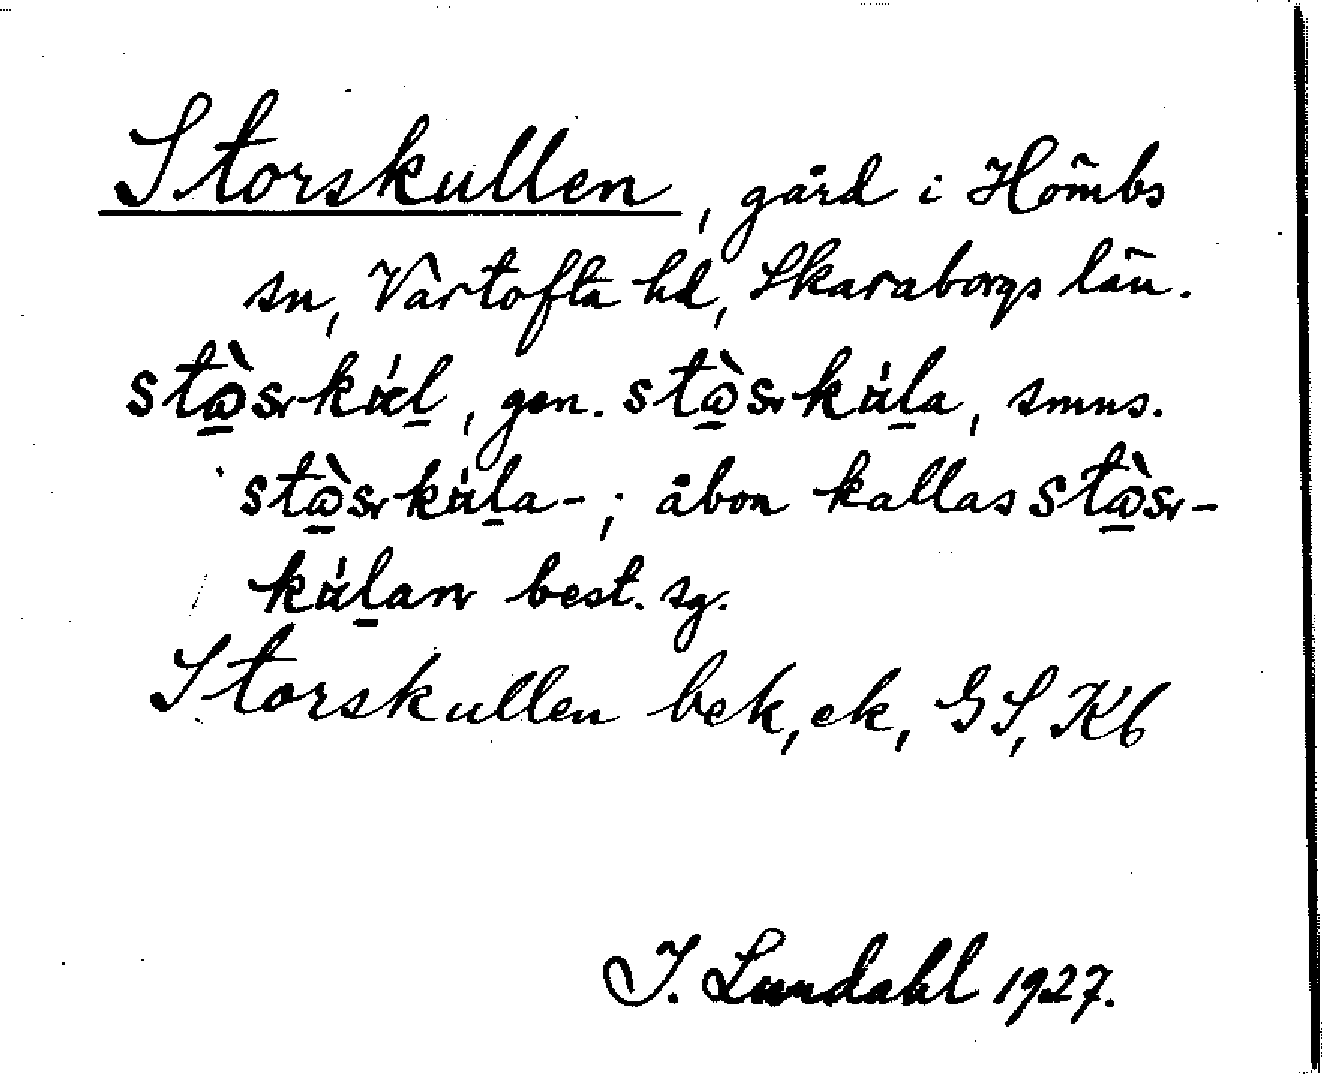 Storskullen, gård i Hömbs
sn, Vartofta hd, Skaraborgs län.
stɷ̀srku̇l, gen. stɷ̀srku̇la, smns.
stɷ̀srku̇la-; åbon kallas stɷ̀sr-
ku̇lan best. sg.
Storskullen bek, ek, GS, Kb
I. Lundahl 1927.